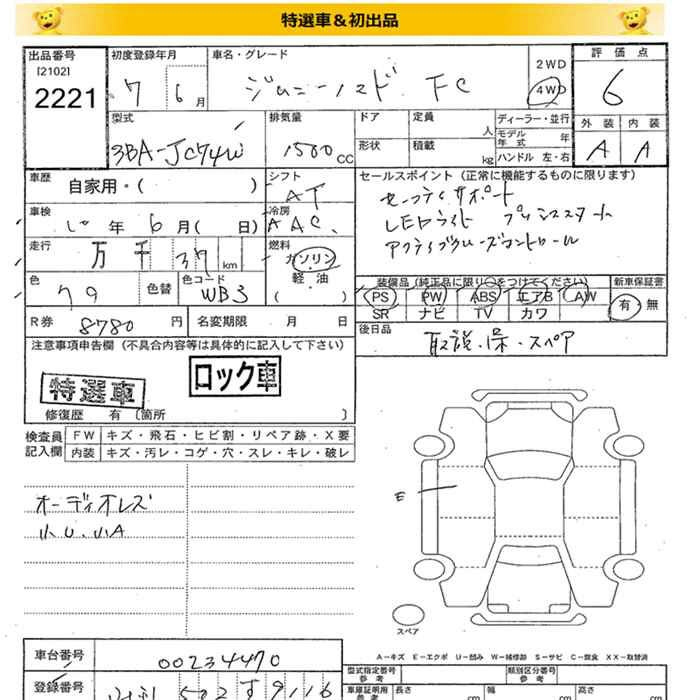 特選車＆初出品
出品番号
[2102]
2221
初度登録年月
7 6月
車名・グレード
ジムニーノマド FC
2WD
4WD
評価点
6
外装 内装
A A
型式
3BA-JC74W
排気量
1500 CC
ドア
形状
定員 人
積載 kg
ディーラー・並行
モデル年式 年
ハンドル 左・右
車歴
自家用・( )
シフト
AT
セールスポイント (正常に機能するものに限ります)
セーフティサポート
LEDライト プッシュスタート
アクティブクルーズコントロール
車検
10年 6月( 日)
冷房
AAC
走行
万 千 37 km
燃料
ガソリン
軽・油
( )
色
色替
色コード
WB3
装備品 (純正品に限り○をつけてください)
PS PW ABS エアB AW
SR ナビ TV カワ
新車保証書
有 無
R券 8780 円
名変期限 月 日
後日品
取説・保・スペア
注意事項申告欄 (不具合内容等は具体的に記入して下さい)
特選車
ロック車
修復歴 有 (箇所 )
検査員記入欄
FW キズ・飛石・ヒビ割・リペア跡・X要
内装 キズ・汚レ・コゲ・穴・スレ・キレ・破レ
オーディオレス
小U.小A
E
スペア
A－キズ E－エクボ U－凹み W－補修跡 S－サビ C－腐食 XX－取替済
車台番号
00234470
登録番号
502 す 9116
型式指定番号 参考
類別区分番号 参考
車庫証明用 参考
長さ 幅 高さ